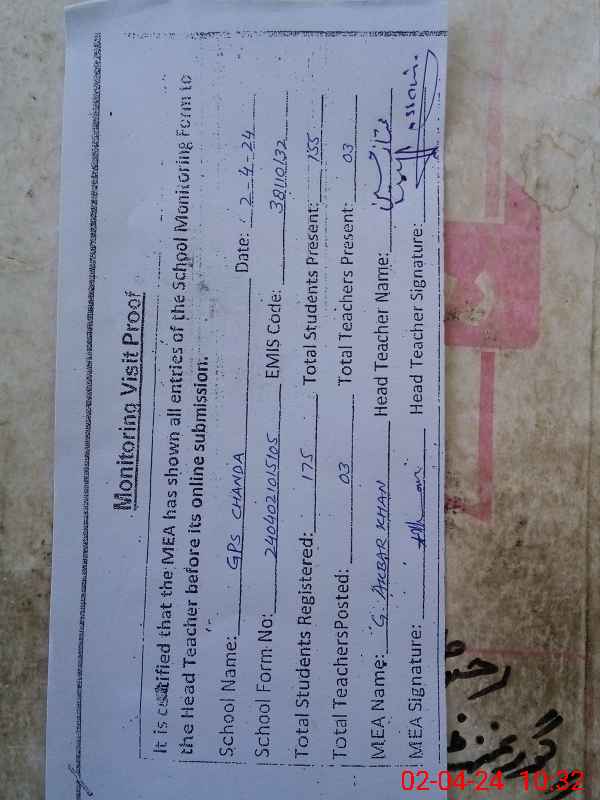 Monitoring Visit Proof
It is certified that the MEA has shown all entries of the School Monitoring Form to
the Head Teacher before its online submission.
School Name: GPS CHANDA Date: 2-4-24
School Form No: 2404021015105 EMIS Code: 30110132
Total Students Registered: 175 Total Students Present: 155
Total TeachersPosted: 03 Total Teachers Present: 03
MEA Name: G. AKBAR KHAN Head Teacher Name:
MEA Signature: Head Teacher Signature:
02-04-24 10:32